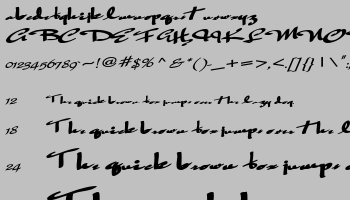 abcdefghijklmnopqrst uvwxyz
ABCDEFGHIJKLMNO
0123456789~!@#$%^&*()-_+=>,<.[]{}|\":
12 The quick brown fox jumps over the lazy dog
18 The quick brown fox jumps over the l
24 The quick brown fox jumps